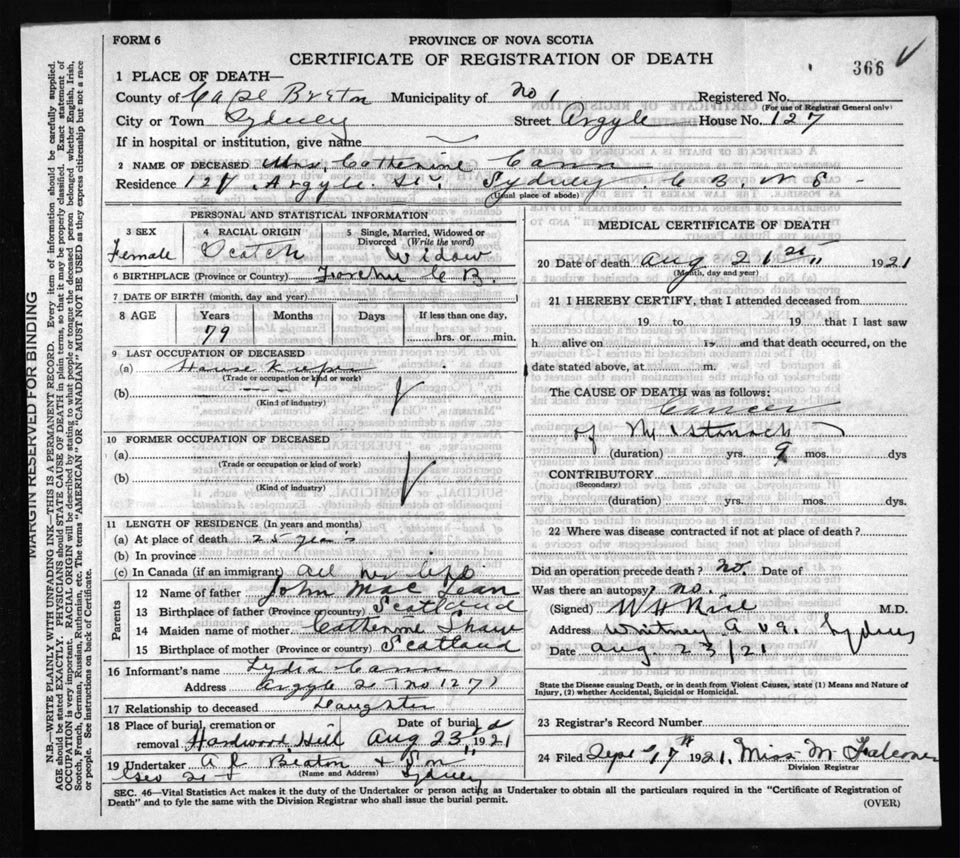 FORM 6
PROVINCE OF NOVA SCOTIA
CERTIFICATE OF REGISTRATION OF DEATH
366
1 PLACE OF DEATH—
County of Cape Breton Municipality of No 1 Registered No.
(For use of Registrar General only)
City or Town Sydney Street Argyle House No. 127
If in hospital or institution, give name
2 NAME OF DECEASED Mrs. Catherine Cann
Residence 127 Argyle St. Sydney C B. N S
(Usual place of abode)
PERSONAL AND STATISTICAL INFORMATION
3 SEX
Female
4 RACIAL ORIGIN
Scotch
5 Single, Married, Widowed or Divorced (Write the word)
Widow
6 BIRTHPLACE (Province or Country) Forchu C B.
7 DATE OF BIRTH (month, day and year)
8 AGE Years Months Days If less than one day,
79 hrs. or min.
9 LAST OCCUPATION OF DECEASED
(a) House Keeper
(Trade or occupation or kind of work)
(b)
(Kind of industry)
10 FORMER OCCUPATION OF DECEASED
(a)
(Trade or occupation or kind of work)
(b)
(Kind of industry)
11 LENGTH OF RESIDENCE (In years and months)
(a) At place of death 25 years
(b) In province
(c) In Canada (if an immigrant) all her life
Parents
12 Name of father John Mac Lean
13 Birthplace of father (Province or country) Scotland
14 Maiden name of mother Catherine Shaw
15 Birthplace of mother (Province or country) Scotland
16 Informant's name Lydia Cann
Address Argyle St no 127
17 Relationship to deceased Daughter
18 Place of burial, cremation or removal Hardwood Hill
Date of burial Aug 23rd 1921
19 Undertaker A J Beaton & Son
(Name and Address)
Geo St Sydney
MEDICAL CERTIFICATE OF DEATH
20 Date of death Aug 21st 1921
(Month, day and year)
21 I HEREBY CERTIFY, that I attended deceased from
19 to 19 that I last saw
h alive on 19 and that death occurred, on the
date stated above, at m.
The CAUSE OF DEATH was as follows:
Cancer
of the stomach
(duration) yrs. 9 mos. dys
CONTRIBUTORY
(Secondary)
(duration) yrs. mos. dys.
22 Where was disease contracted if not at place of death?
Did an operation precede death? no Date of
Was there an autopsy? no.
(Signed) M.D.
Address Whitney Ave. Sydney
Date Aug. 23/21
State the Disease causing Death, or in death from Violent Causes, state (1) Means and Nature of Injury, (2) whether Accidental, Suicidal or Homicidal.
23 Registrar's Record Number
24 Filed Sept 7th 1921, Miss M
Division Registrar
SEC. 46—Vital Statistics Act makes it the duty of the Undertaker or person acting as Undertaker to obtain all the particulars required in the "Certificate of Registration of
Death" and to fyle the same with the Division Registrar who shall issue the burial permit.
(OVER)
MARGIN RESERVED FOR BINDING
N.B.—WRITE PLAINLY WITH UNFADING INK—THIS IS A PERMANENT RECORD. Every item of information should be carefully supplied.
AGE should be stated EXACTLY. PHYSICIANS should STATE CAUSE OF DEATH in plain terms, so that it may be properly classified. Exact statement of
OCCUPATION is very important. RACIAL ORIGIN will be described by stating to what people or tongue the deceased person belonged whether English, Irish,
Scotch, French, German, Russian, Ruthenian, etc. The terms "AMERICAN" OR "CANADIAN" MUST NOT BE USED as they express citizenship but not a race
or people. See instructions on back of Certificate.